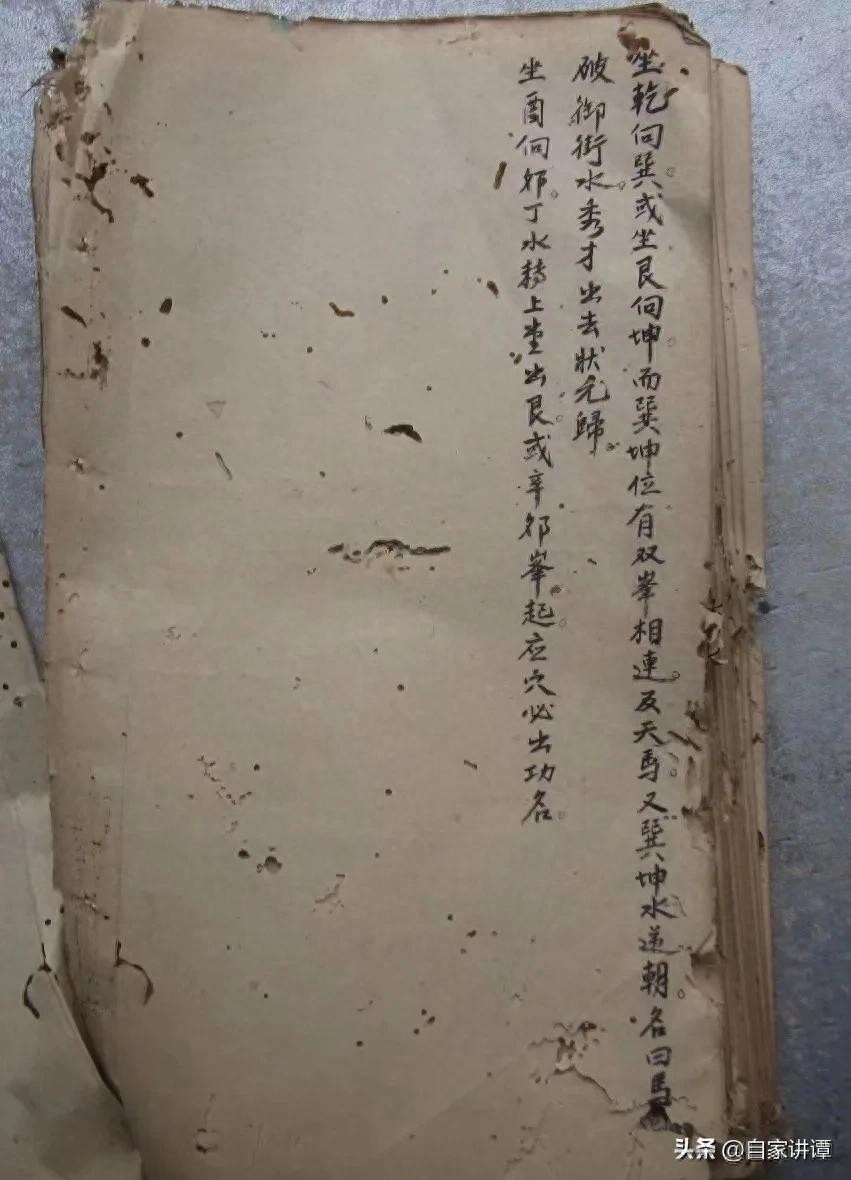 坐乾向巽。或坐艮向坤。而巽坤位有双峯相連。及天馬。又巽坤水逆朝。名曰馬
破御街水。秀才出去狀元歸。
坐酉向邜。丁水轉上堂出艮。或辛邜峯起。应穴必出功名。
头条 @自家讲谭